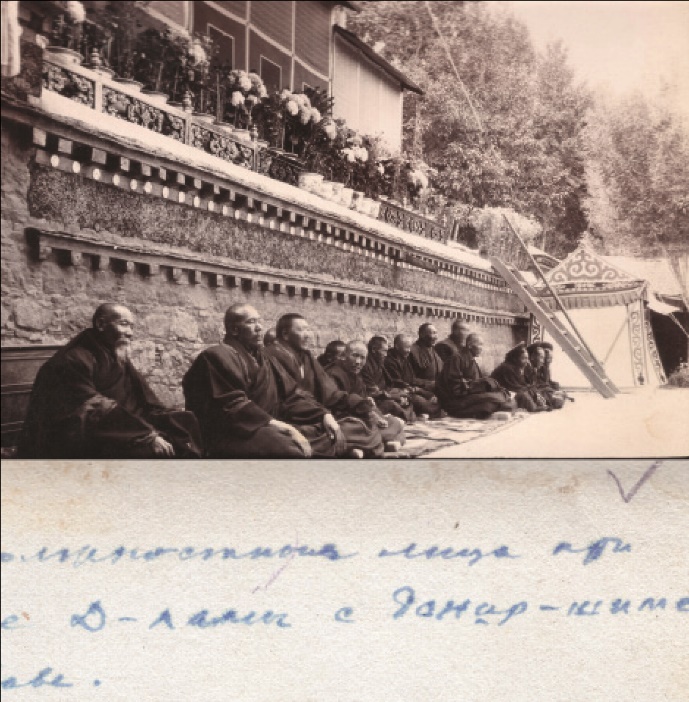 олжностныя лица при
е Д-ламы с Донир-шимо
аве.